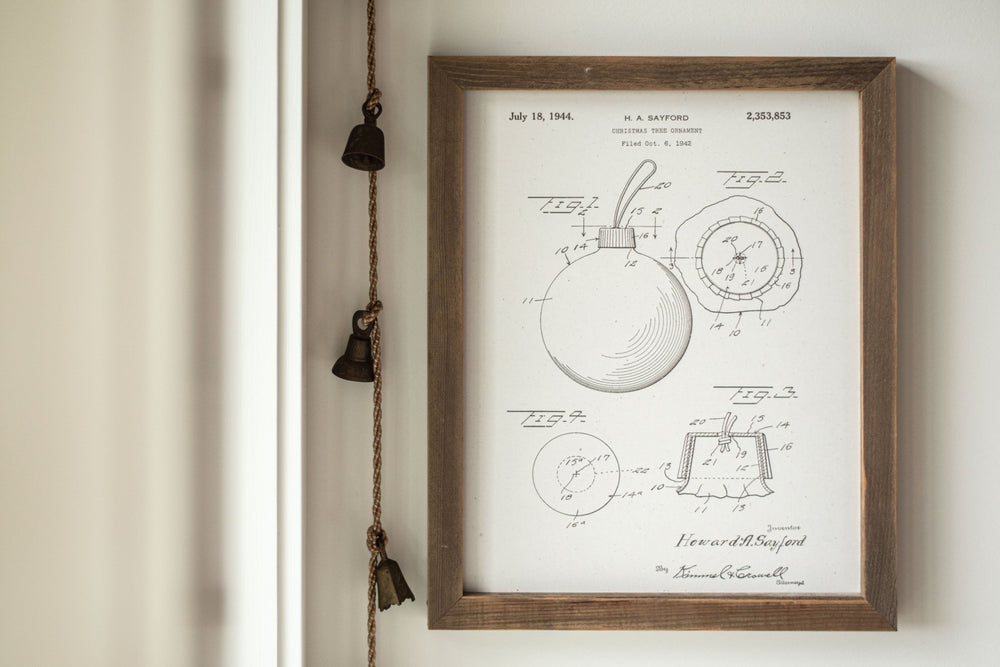 July 18, 1944. H. A. SAYFORD 2,353,853
CHRISTMAS TREE ORNAMENT
Filed Oct. 6, 1942
Fig. 1.
2 2
20
15
14 16
12
10
11
Fig. 2.
16
20 17
3 3
18 19 15
21 16
14 11
10
Fig. 4.
15ª 17
22
18
14ª
16ª
Fig. 3.
20 15
14
16
21 19
12
13
10
11 13
Inventor
Howard A. Sayford
By Kimmel & Crowell
Attorneys